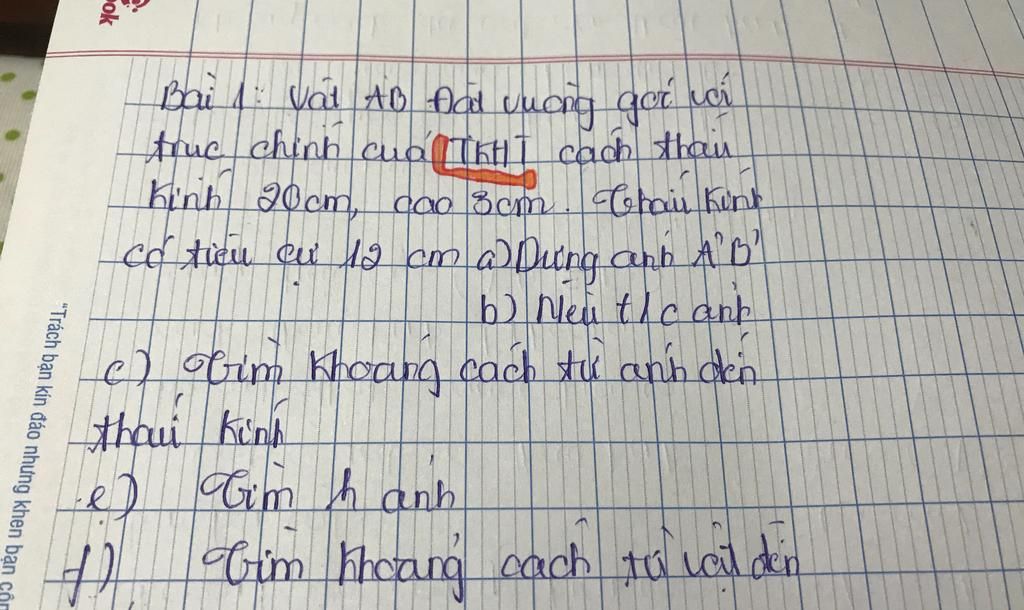 ook
Bài 1: Vật AB Đặt vuông góc với
trục chính của TKHT cách thấu
kính 20cm, cao 3cm. Thấu kính
có tiêu cự 12 cm a) Dựng ảnh A'B'
b) Nêu t/c ảnh
c) Tìm khoảng cách từ ảnh đến
thấu kính
e) Tìm h ảnh
f) Tìm khoảng cách từ vật đến
"Trách bạn kín đáo nhưng khen bạn côn